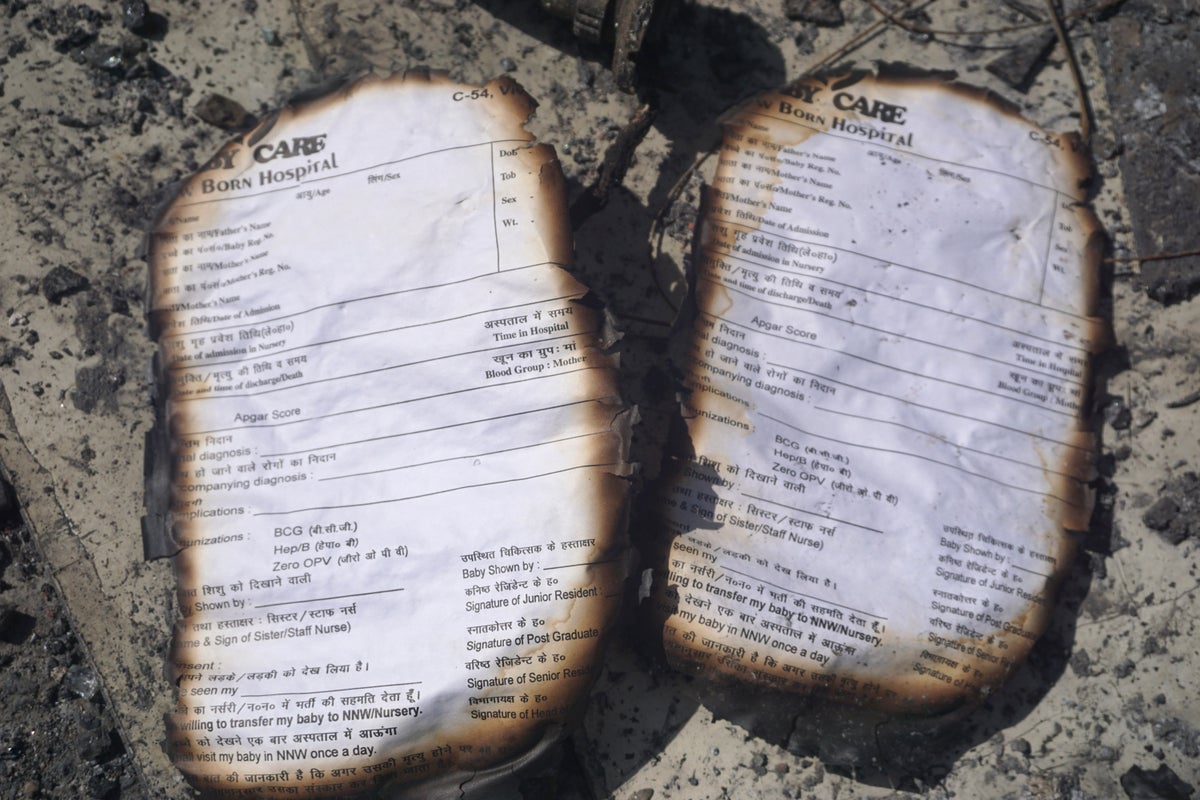 C-54,
BY CARE
W BORN HOSPITAL
Name
आयु/Age
लिंग/Sex
Dob
Tob
Sex
Wt.
का नाम/Father's Name
का पं०सं०/Baby Reg. No.
का नाम/Mother's Name
का पं०सं०/Mother's Reg. No.
/Mother's Name
तिथि/Date of Admission
गृह प्रवेश तिथि(ले०हा०)
Date of admission in Nursery
/मृत्यु की तिथि व समय
and time of discharge/Death
अस्पताल में समय
Time in Hospital
खून का ग्रुप: मां
Blood Group : Mother
Apgar Score
निदान
al diagnosis :
हो जाने वाले रोगों का निदान
companying diagnosis :
mplications :
unizations :
BCG (बी.सी.जी.)
Hep/B (हेपा० बी)
Zero OPV (जीरो ओ पी बी)
शिशु को दिखाने वाली
y Shown by :
तथा हस्ताक्षर : सिस्टर/स्टाफ नर्स
me & Sign of Sister/Staff Nurse)
उपस्थित चिकित्सक के हस्ताक्षर
Baby Shown by :
कनिष्ठ रेजिडेन्ट के ह०
Signature of Junior Resident :
स्नातकोत्तर के ह०
Signature of Post Graduate
वरिष्ठ रेजिडेन्ट के ह०
Signature of Senior Resid
विभागायक्ष के ह०
Signature of Head
nsent :
लडके/लडकी को देख लिया है।
e seen my
का नर्सरी/न०न० में भर्ती की सहमति देता हूँ।
willing to transfer my baby to NNW/Nursery.
को देखने एक बार अस्पताल में आऊंगा
visit my baby in NNW once a day.
बात की जानकारी है कि अगर उसकी मृत्यु होने पर
उसका संस्कार कर
BY CARE
W BORN HOSPITAL
C-54,
Name
आयु/Age
लिंग/Sex
Tob
Sex
Wt.
का नाम/Father's Name
का पं०सं०/Baby Reg. No.
का नाम/Mother's Name
का पं०सं०/Mother's Reg. No.
/Mother's Name
तिथि/Date of Admission
शिशु गृह प्रवेश तिथि(ले०हा०)
Date of admission in Nursery
/मृत्यु की तिथि व समय
ate and time of discharge/Death
अस्पताल में समय
Time in Hospital
खून का ग्रुप: मां
Blood Group : Mothe
Apgar Score
निदान
al diagnosis :
हो जाने वाले रोगों का निदान
companying diagnosis :
mplications :
unizations :
BCG (बी.सी.जी.)
Hep/B (हेपा० बी)
Zero OPV (जीरो ओ पी बी)
शिशु को दिखाने वाली
Shown by :
तथा हस्ताक्षर : सिस्टर/स्टाफ नर्स
& Sign of Sister/Staff Nurse)
उपस्थित चिकित्सक के हस्ताक्षर
Baby Shown by :
कनिष्ठ रेजिडेन्ट के ह०
Signature of Junior Resid
स्नातकोत्तर के ह०
Signature of Post Graduat
वरिष्ठ रेजिडेन्ट के ह०
Signature of Senior Res
विभागायक्ष के ह०
Signature of
लडके/लडकी को देख लिया है।
seen my
का नर्सरी/न०न० में भर्ती की सहमति देता हूँ।
lling to transfer my baby to NNW/Nursery.
को देखने एक बार अस्पताल में आऊंगा
my baby in NNW once a day
की जानकारी है कि अगर उसकी मृत्यु होने पर
उसका संस्कार